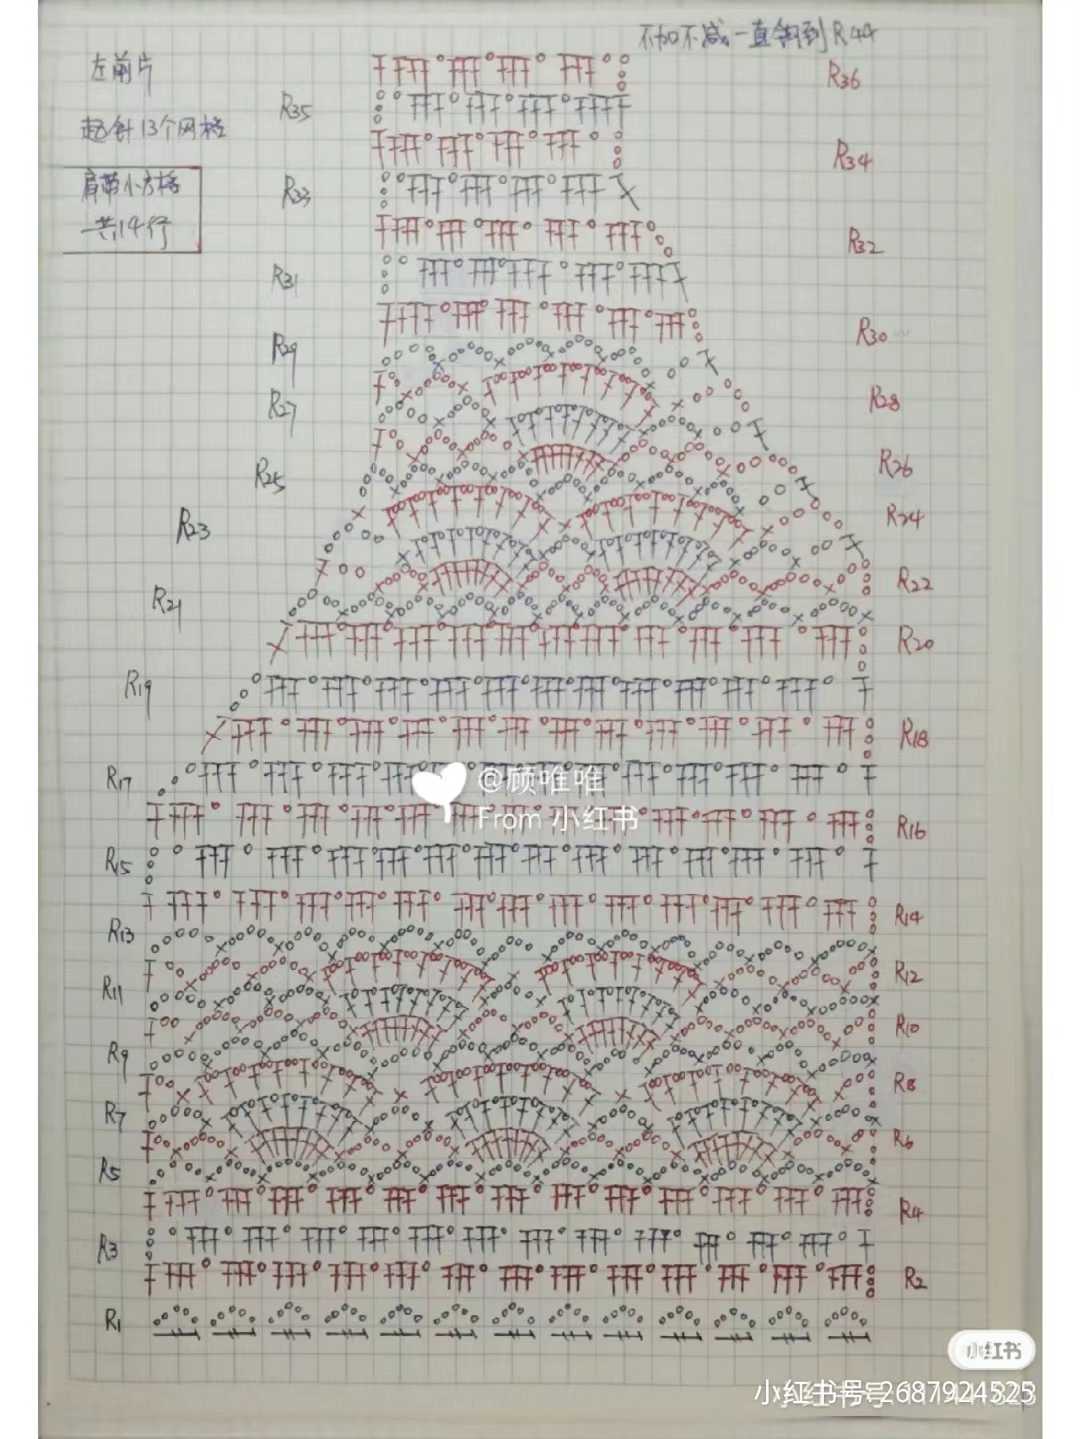 不加不减一直钩到R44
左前片
起针13个网格
肩带小方格
共14行
R36
R35
R34
R33
R32
R31
R30
R29
R28
R27
R26
R25
R24
R23
R22
R21
R20
R19
R18
R17
R16
R15
R14
R13
R12
R11
R10
R9
R8
R7
R6
R5
R4
R3
R2
R1
@顾唯唯
From 小红书
小红书
小红书号:2687924525